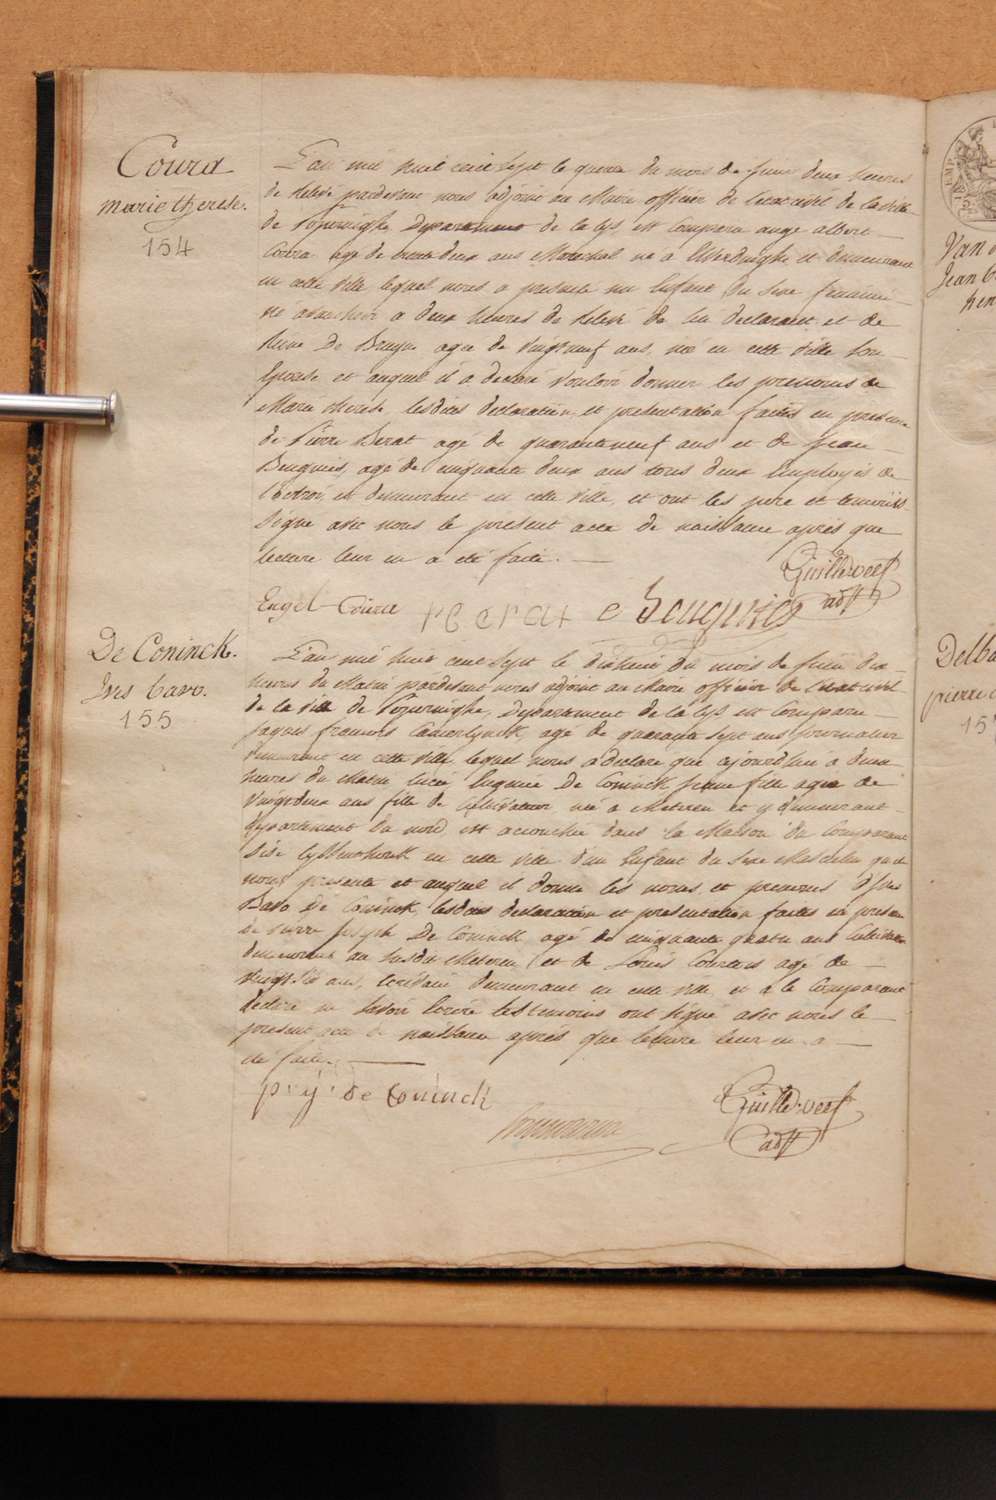 Coura
marie therese.
154
L'an mil huit cent sept le quinze du mois de juin deux heures
de relevé pardevant nous adjoint au Maire officier de l'etat civil de la ville
de Poperinghe, Departement de la Lys, est comparu ange albert
Coura agé de trente deux ans Marechal né à Elverdinghe et demeurant
en cette ville lequel nous a presenté un Enfant du sexe feminin
né avant hier a deux heures de relevé de lui declarant et de
De Bruyn agee de vingt neuf ans, née en cette ville son
Epouse et auquel il a declaré vouloir donner les prenoms de
Marie therese, lesdites declaration et presentation faites en presence
de Pierre Berat agé de quarante neuf ans et de Jean
Bouquies, agé de cinquante deux ans tous deux Employés de
l'octroi et demeurant en cette ville, et ont les pere et temoins
signé avec nous le present acte de naissance après que
lecture leur en a eté faite.
Guille-verf
adjt
Engel Coura
p berat
Bouquies
De Coninck.
Ives bavo.
155
L'an mil huit cent sept le dixhuit du mois de juin dix
heures du matin pardevant nous adjoint au Maire officier de l'etat civil
de la ville de Poperinghe, Departement de la Lys est comparu
jaques francois agé de quarante sept ans journalier
demeurant en cette ville, lequel nous a declaré que ajourdhui à deux
heures du matin Eugenie De Coninck jeune fille agee de
vingt deux ans fille de cultivateur née a Meteren et y demeurant
departement du nord, est accouchée dans la Maison du comparant
sise en cette ville d'un Enfant du sexe Masculin qu'il
nous presente et auquel il donne les noms et prenoms d'Ives
Bavo De Coninck, lesdites declaration et presentation faites en presence
de Pierre Joseph De Coninck agé de cinquante quatre ans Cultivateur
demeurant au susdit Meteren et de Louis agé de
vingt six ans, demeurant en cette ville et a le comparant
declaré ne savoir ecrire les temoins ont signé avec nous le
present acte de naissance après que lecture leur en a
été faite.
p j de Coninck
Guille-verf
adjt
Van
Jean b
hen
Delba
pierre
15
EMP